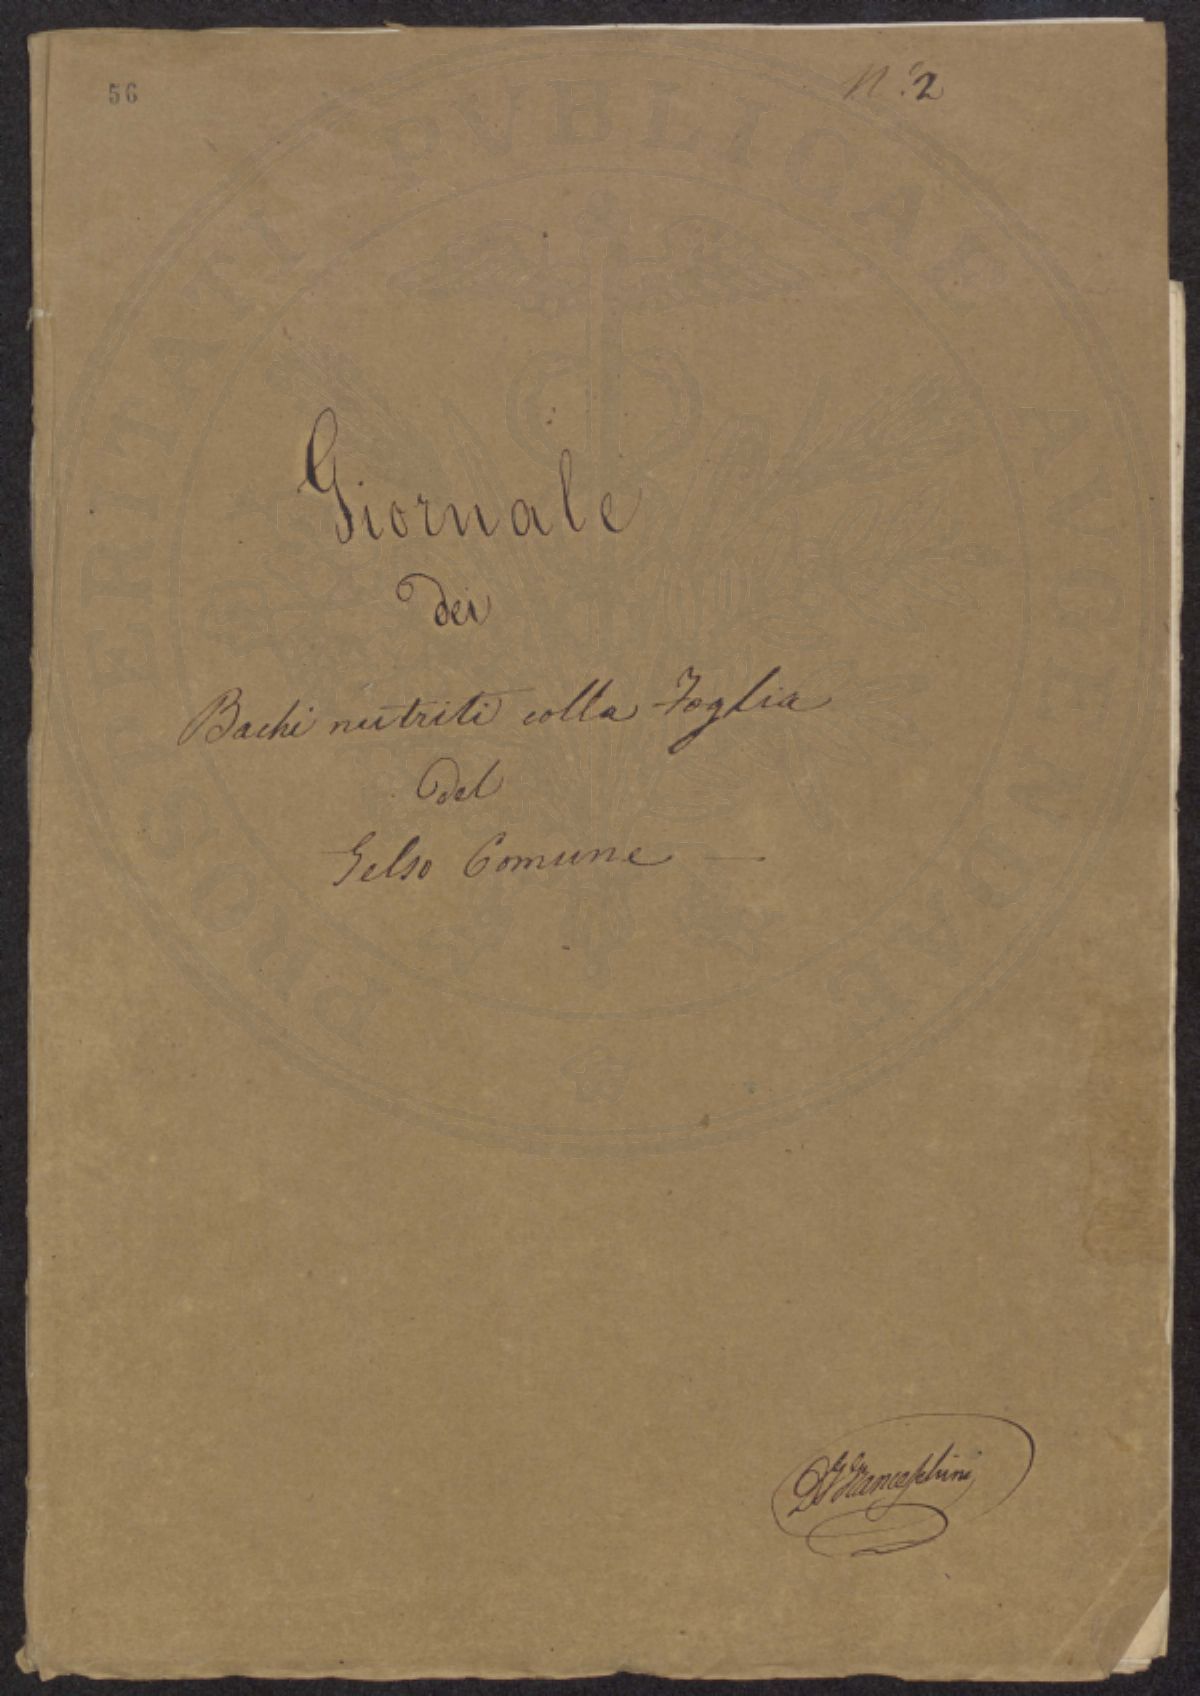 56
N.º 2
Giornale
dei
Bachi nutriti colla Foglia
del
Gelso Comune
Franceschini
PROSPERITATI PVBLICAE AVGENDAE